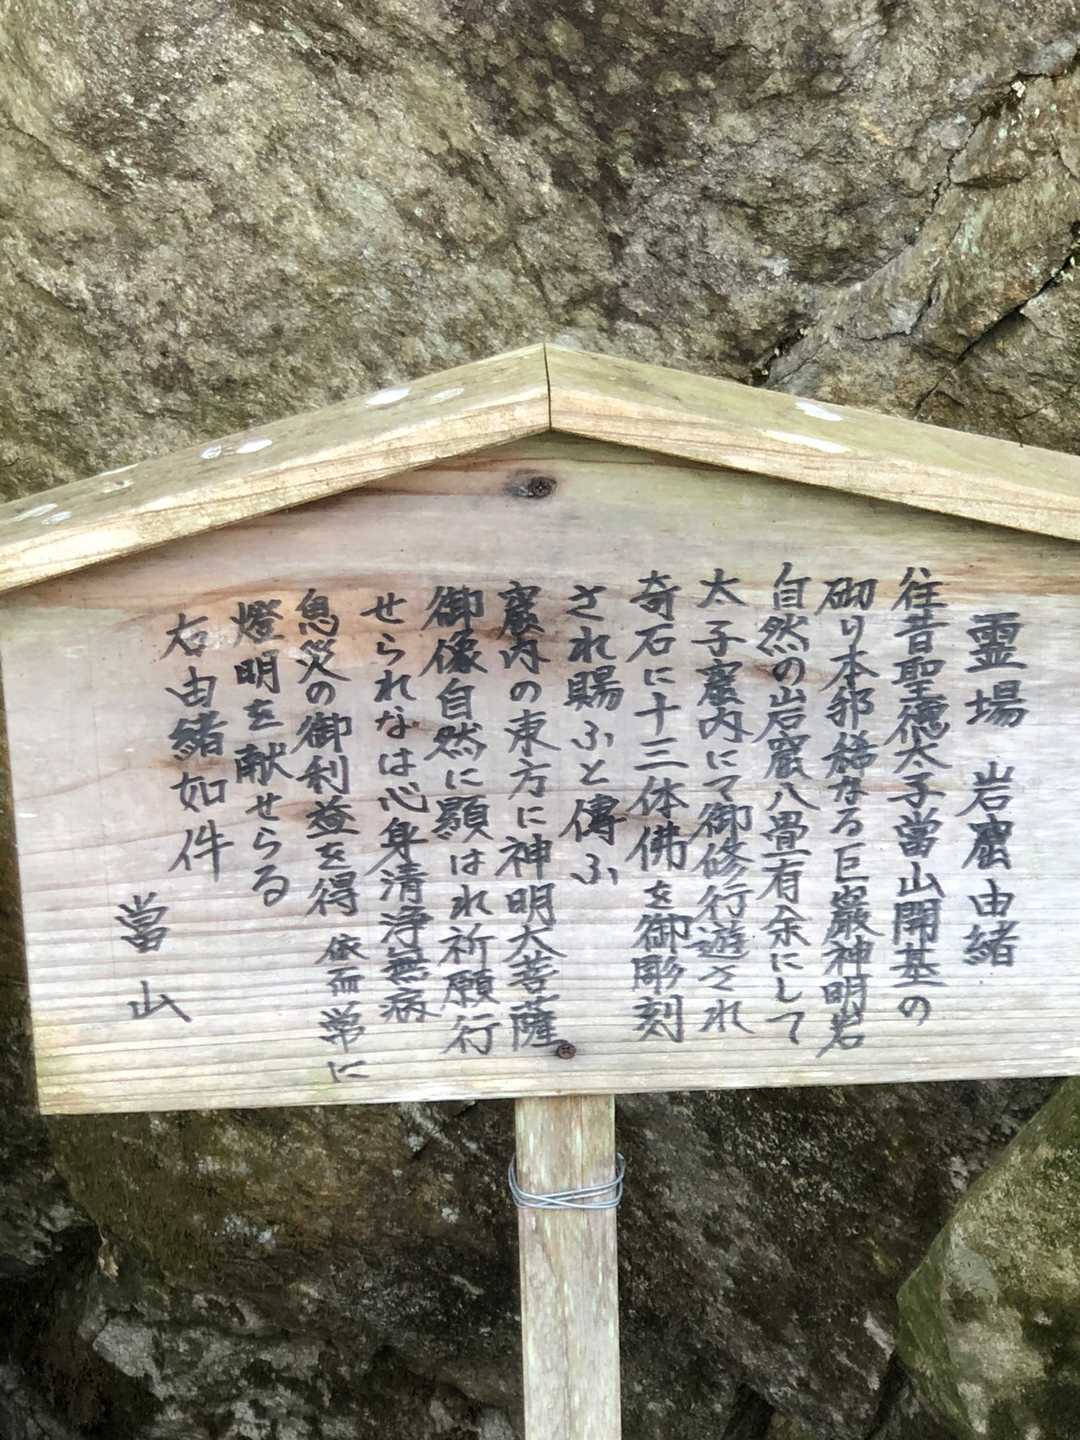 霊場 岩窟由緒
往昔聖德太子當山開基の
砌り本邦稀なる巨巖神明岩
自然の岩窟八畳有余にして
太子窟内にて御修行遊され
奇石に十三体佛を御彫刻
され賜ふと傳ふ
窟内の東方に神明大菩薩
御像自然に顯はれ祈願行
せられなは心身清浄無病
息災の御利益を得 依而常に
燈明を献せらる
右由緒如件
當山